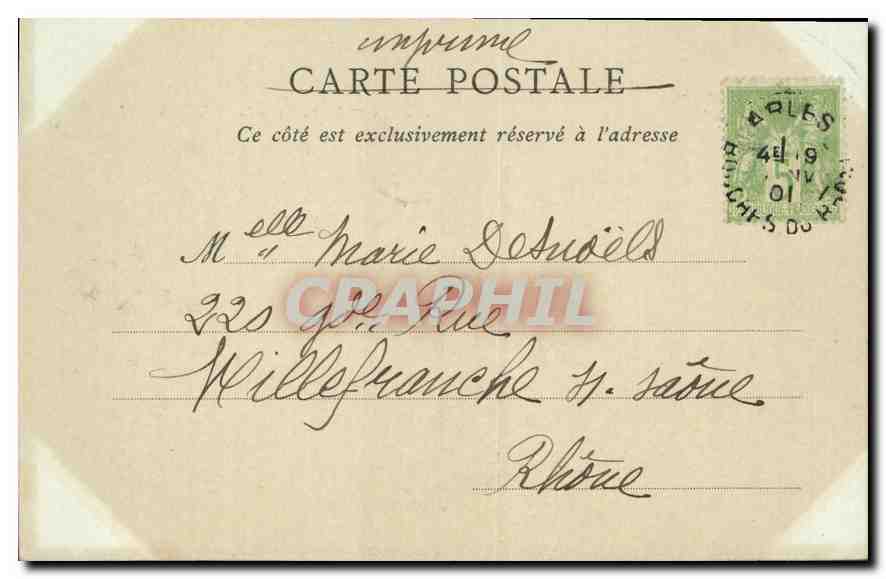 imprimé
CARTE POSTALE
Ce côté est exclusivement réservé à l'adresse
ARLES
4E 19
01
BOUCHES DU RHONE
Melle Marie Desnoëls
CPAPHIL
220 gde Rue
Villefranche s. saône
Rhône